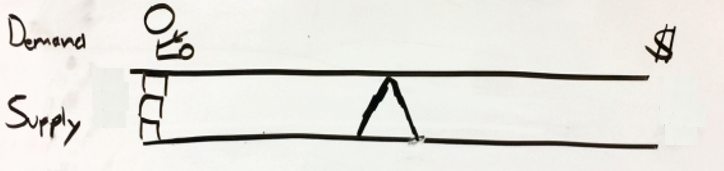 Demand
$
Supply